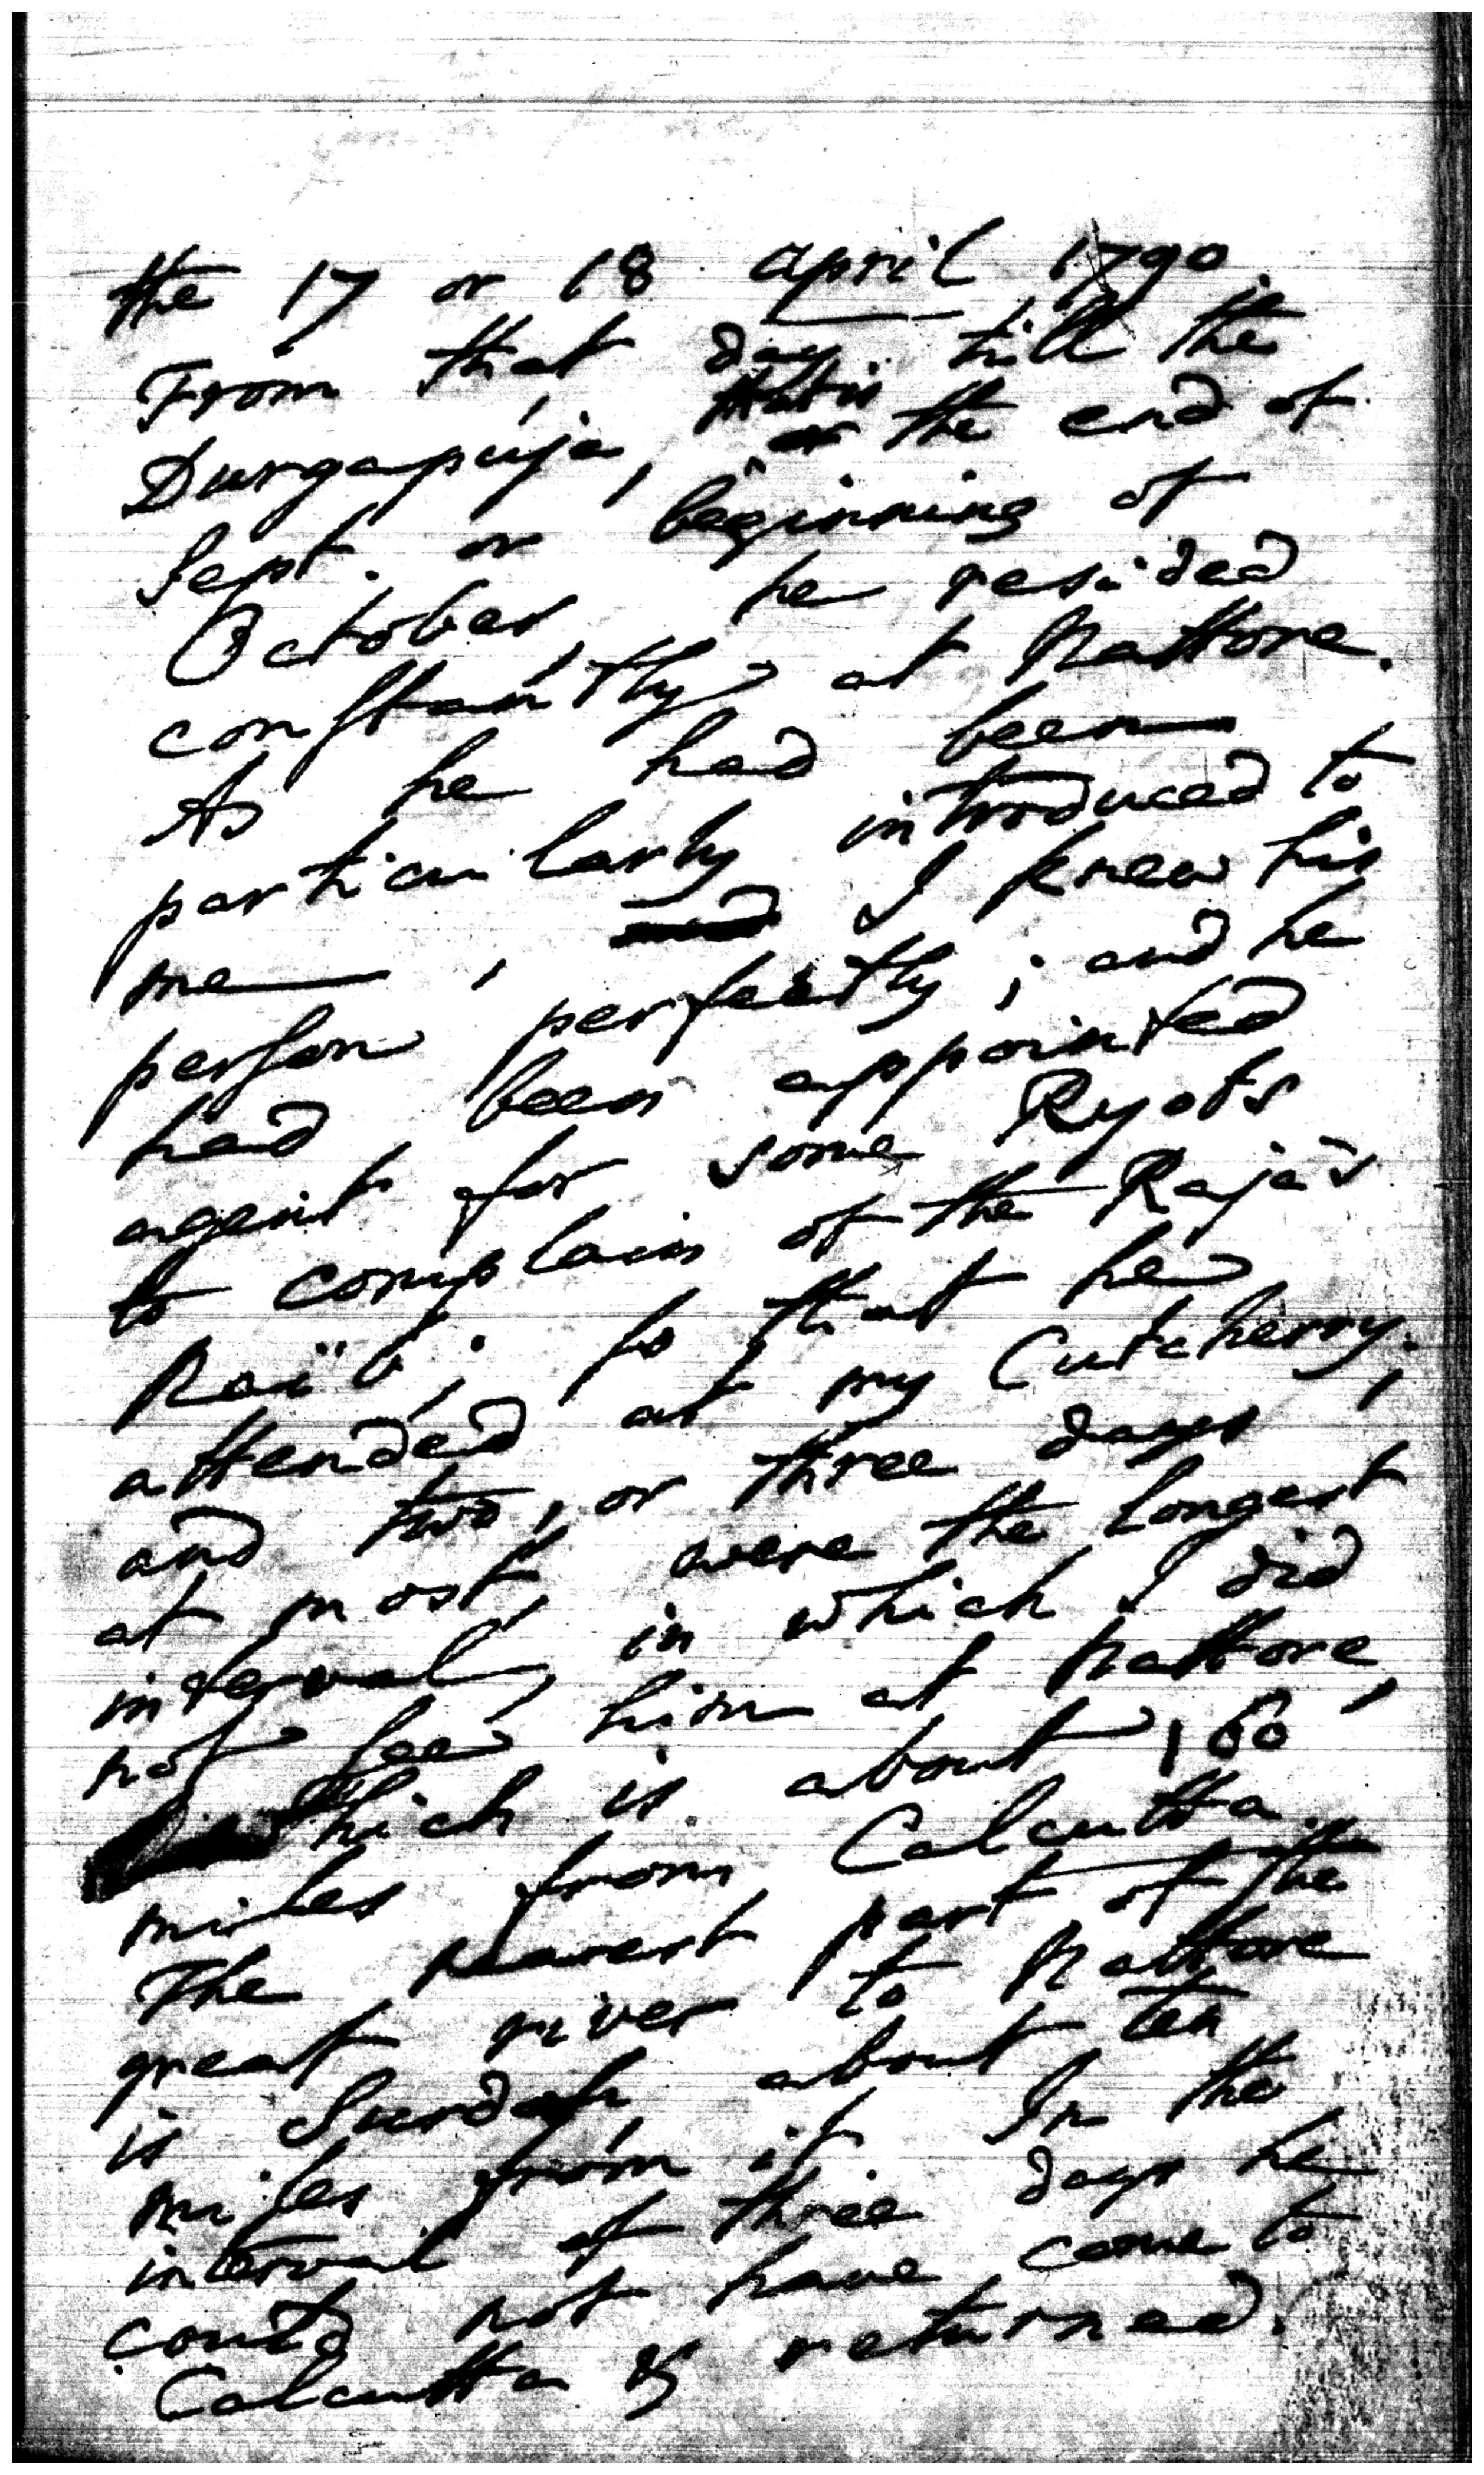 the 17 or 18 april 1790.
From that day till the
Durgapúja, that is the end of
Sept. or beginning of
October, he resided
conſtantly at Nattore.
As he had been
particularly introduced to
me, and I knew his
perſon perfectly; and he
had been appointed
agent for some Ryots
to complain of the Raja's
Naïb; ſo that he
attended at my Cutcherry;
and two, or three days,
at most, were the longest
interval, in which I did
not ſee him at Nattore,
which is about 160
miles from Calcutta.
The nearest part of the
great river to Nattore
is Surdah, about ten
miles from it. In the
interval of three days he
could not have come to
Calcutta & returned.